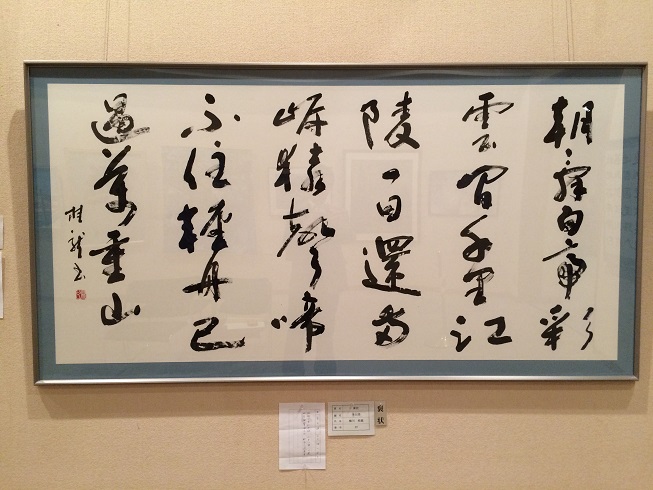 朝辞白帝彩
雲間千里江
陵一日還両
岸猿聲啼
不住輕舟已
過萬重山
書
褒状